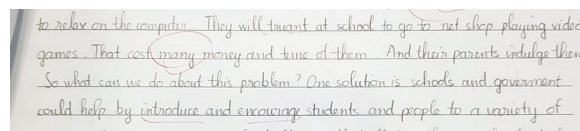 to relax on the computer. They will truant at school to go to net shop playing video
games. That cost many money and time of them. And their parents indulge them
So what can we do about this problem? One solution is schools and government
could help by introduce and encourage students and people to a variety of